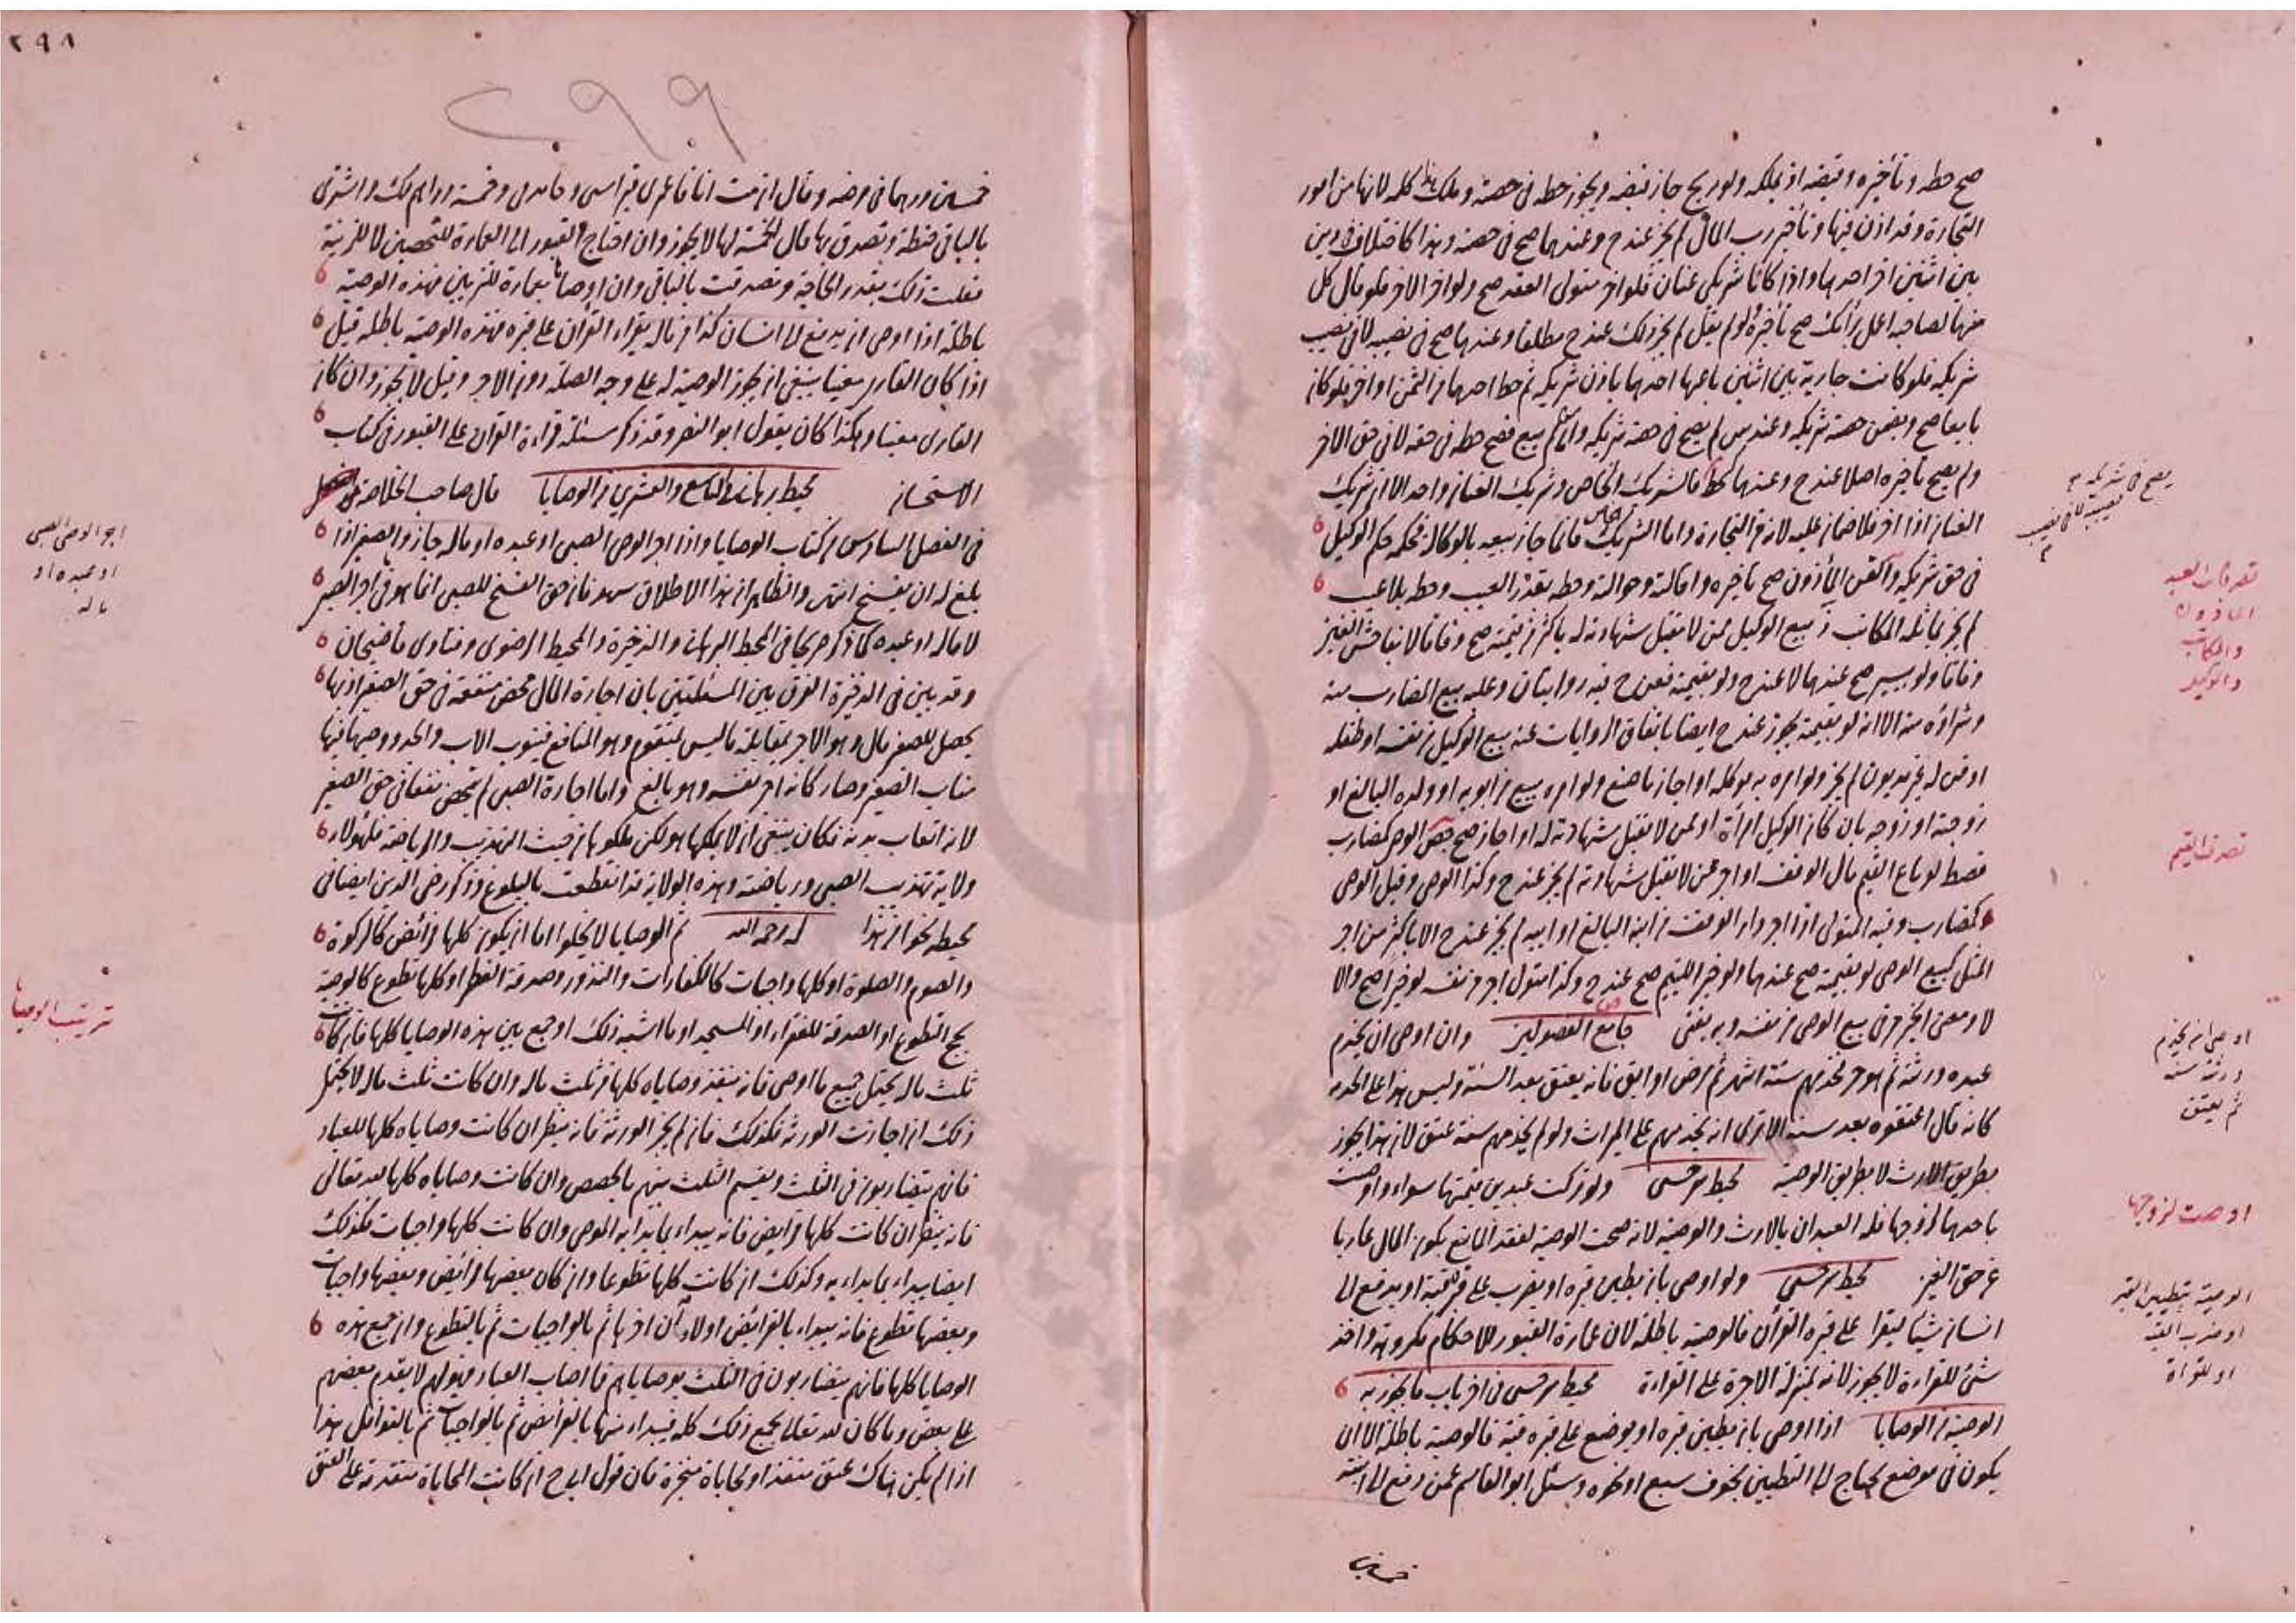 صح حطه وتأخيره وقبضه اذ يملكه ولو ربح جاز قبضه ويجوز حطه في حصته وملك هذا كله لانها من امور
التجارة وقد اذن فيها وتأخير رب المال لم يجز عند ح وعندهما صح في حصته وهذا كاختلاف في دين
بين اثنين اخر احدهما واذا كانا شريكي عنان فلو اخر متولي العقد صح ولو اخر الاخر فلو قال كل
منهما لصاحبه اعمل برأيك صح تأخيره ولو لم يقل لم يجز ذلك عند ح مطلقا وعندهما صح في نصيبه لا في نصيب
شريكه فلو كانت جارية بين اثنين باعها احدهما باذن شريكه ثم حط احدهما من الثمن او اخر فلو كان
بايعا صح ويضمن حصة شريكه وعند س لم يصح في حصة شريكه ولو لم يبع فصح حطه في حقه لا في حق الاخر
ولم يصح تأخيره اصلا عند ح وعندهما كحط فالشريك الخاص وشريك العنان واحد الا ان شريك
العنان اذا اخر فلا ضمان عليه لانه من التجارة واما الشريك الخاص فانما جاز بيعه بالوكالة فحكمه حكم الوكيل
في حق شريكه والقن المأذون صح تأخيره واقالته وحوالته وحطه بقدر العيب وحطه بلا عيب
لم يجز بماثله المكاتب بيع الوكيل ممن لا تقبل شهادته له باكثر من قيمته صح وفاقا لا بفاحش الغبن
وفاقا ولو بيسير صح عندهما لا عند ح ولو بقيمته فعن ح فيه روايتان وعليه بيع المضارب منه
وشراؤه منه الا انه لو بقيمته يجوز عند ح ايضا باتفاق الروايات عنه بيع الوكيل من نفسه او طفله
او قن له غير مديون لم يجز ولو امره به موكله او اجاز ما صنع ولو امره ببيع من ابويه او ولده البالغ او
زوجته او زوجه بان كان الوكيل امرأة او ممن لا تقبل شهادته له او اجاز صح الوصي كمضارب
قصط لو باع القيم مال الوقف او اجر ممن لا تقبل شهادته لم يجز عند ح وكذا الوصي وقيل الوصي
كمضارب وفيه المتولي اذا اجر دار الوقف من ابنه البالغ او ابيه لم يجز عند ح الا باكثر من اجر
المثل كبيع الوصي لو بقيمته صح عندهما ولو خير لليتيم صح عند ح وكذا متول اجر من نفسه لو خيرا صح والا
لا ومعنى الخير مر في بيع الوصي من نفسه وبه يفتى جامع الفصولين وان اوصى ان يخدم
عبده ورثته ثم هو حر فخدمهم ستة اشهر ثم مرض او ابق فانه يعتق بعد السنة وليس هذا على الخدمة
كانه قال اعتقوه بعد سنة الا ترى انه يخدمهم على الميراث ولو لم يخدمهم سنة عتق لان هذا يجوز
بطريق الارث لا بطريق الوصية محيط سرخسي ولو تركت عبدين قيمتهما سواء واوصت
باحدهما لزوجها فله العبدان بالارث والوصية لانه صحت الوصية لفقد المانع بكون المال عاريا
عن حق الغير محيط سرخسي ولو اوصى بان يطين قبره او يضرب على قبر قبة او يدفع الى
انسان شيئا ليقرا على قبره القرآن فالوصية باطلة لان عمارة القبور للاحكام مكروهة واخذ
شئ للقراءة لا يجوز لانه بمنزلة الاجرة على القراءة محيط سرخسي في اخر باب ما يجوز به
الوصية من الوصايا اذا اوصى بان يطين قبره او يوضع على قبره قبة فالوصية باطلة الا ان
يكون في موضع يحتاج الى التطيين لخوف سبع او نحوه وسئل ابو القاسم عمن دفع الى ابنته
خمسين
يصح في شريكه
تصرفات العبد
المأذون
والمكاتب
والوكيل
تصرف القيم
اوصى ان يخدم
ورثته سنة
ثم يعتق
اوصت لزوجها
الوصية بتطيين القبر
او ضرب القبة
او للقراءة
٢٩٨
٢٩٩
خمسين درهما في مرضه وقال ان مت انا فاعمري قبر اسي وخمسة دراهم لك واشتري
بالباقي حنطة وتصدقي بها قال الخمسة لها لا يجوز وان احتاج القبور الى العمارة للتحصين لا للزينة
فعلت ذلك بقدر الحاجة وتصدقت بالباقي وان اوصاها بعمارة للتزيين فهذه الوصية
باطلة اذا اوصى ان يدفع الى انسان كذا من ماله يقراء القرآن على قبره فهذه الوصية باطلة قيل
اذا كان القارئ معينا ينبغي ان يجوز الوصية له على وجه الصلة دون الاجر وقيل لا يجوز وان كان
القارى معينا وهكذا كان يقول ابو النصر وقد ذكر مسئلة قراءة القرآن على القبور في كتاب
الاستحسان محيط برهاني في التاسع والعشرين من الوصايا قال صاحب الخلاصة
في الفصل السادس من كتاب الوصايا واذا اجر الوصي الصبي او عبده او ماله جاز والصغير اذا
بلغ له ان يفسخ انتهى والظاهر ان هذا الاطلاق سهو فان حق الفسخ للصبي انما هو في اجر الصبي
لا ماله او عبده كما ذكر صريحا في المحيط البرهاني والذخيرة والمحيط الرضوي وفتاوى قاضيخان
وقد بين في الذخيرة الفرق بين المسئلتين بان اجارة المال محض منفعة في حق الصغير اذ بها
يحصل للصغير مال وهو الاجر بمقابلة ما ليس بمتقوم وهو المنافع فينوب الاب والجد ووصيهما فيها
مناب الصغير وصار كانه اجر نفسه وهو بالغ واما اجارة الصبي لم تمحض نفعا في حق الصغير
لانه اتعاب بدنه فكان ينبغي ان لا يملكها هو لكن ملكوها من حيث التهذيب والرياضة فلهؤلاء
ولاية تهذيب الصبي ورياضته وهذه الولاية قد انقطعت بالبلوغ وذكر رضي الدين ايضا في
محيطه نحوا من هذا له رحمه الله ثم الوصايا لا يخلوا اما ان يكون كلها فرائض كالزكوة
والصوم والصلوة او كلها واجبات كالكفارات والنذور وصدقة الفطر او كلها تطوع كالوصية
بحج التطوع او الصدقة للفقراء او المسجد او ما اشبه ذلك او جمع بين هذه الوصايا كلها فان كانت
ثلث ماله يحتمل جميع ما اوصى فانه ينفذ وصاياه كلها من ثلث ماله وان كانت ثلث ماله لا يحتمل
ذلك ان اجازت الورثة فكذلك فان لم يجز الورثة فانه ينظر ان كانت وصاياه كلها للعباد
فانهم يتضاربون في الثلث ويقسم الثلث بينهم بالحصص وان كانت وصاياه كلها لله تعالى
فانه ينظر ان كانت كلها فرايض فانه يبداء بما بدا به الموصي وان كانت كلها واجبات فكذلك
ايضا يبداء بما بداء به وكذلك ان كانت كلها تطوعا وان كان بعضها فرائض وبعضها واجبات
وبعضها تطوع فانه يبداء بالفرائض اولا وان اخرها ثم بالواجبات ثم بالتطوع وان جمع هذه
الوصايا كلها فانهم يتضاربون في الثلث بوصاياهم فما اصاب العباد فهو لهم لا يقدم بعضهم
على بعض وما كان لله تعالى يجمع ذلك كله فيبداء منها بالفرائض ثم بالواجبات ثم بالنوافل هذا
اذا لم يكن هناك عتق منفذ او محاباة منجزة فان قول ابي ح ان كانت المحاباة متقدمة على العتق
اجر الوصي الصبي
او عبده او
ماله
ترتيب الوصايا